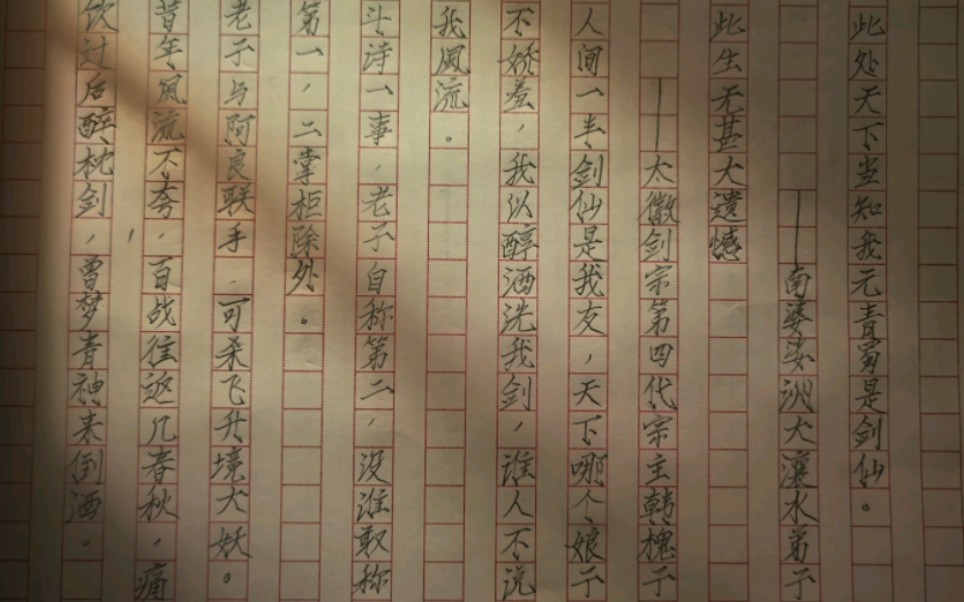 此处天下当知我元青蜀是剑仙。
——南婆娑洲大瀼水弟子
此生无甚大遗憾
——太徽剑宗第四代宗主韩槐子
人间一半剑仙是我友，天下哪个娘子
不娇羞，我以醇酒洗我剑，谁人不说
我风流。
斗诗一事，老子自称第二，没谁敢称
第一，二掌柜除外。
老子与阿良联手，可杀飞升境大妖。
昔年风流不夸，百战往返几春秋，痛
饮过后醉枕剑，曾梦青神来倒酒。